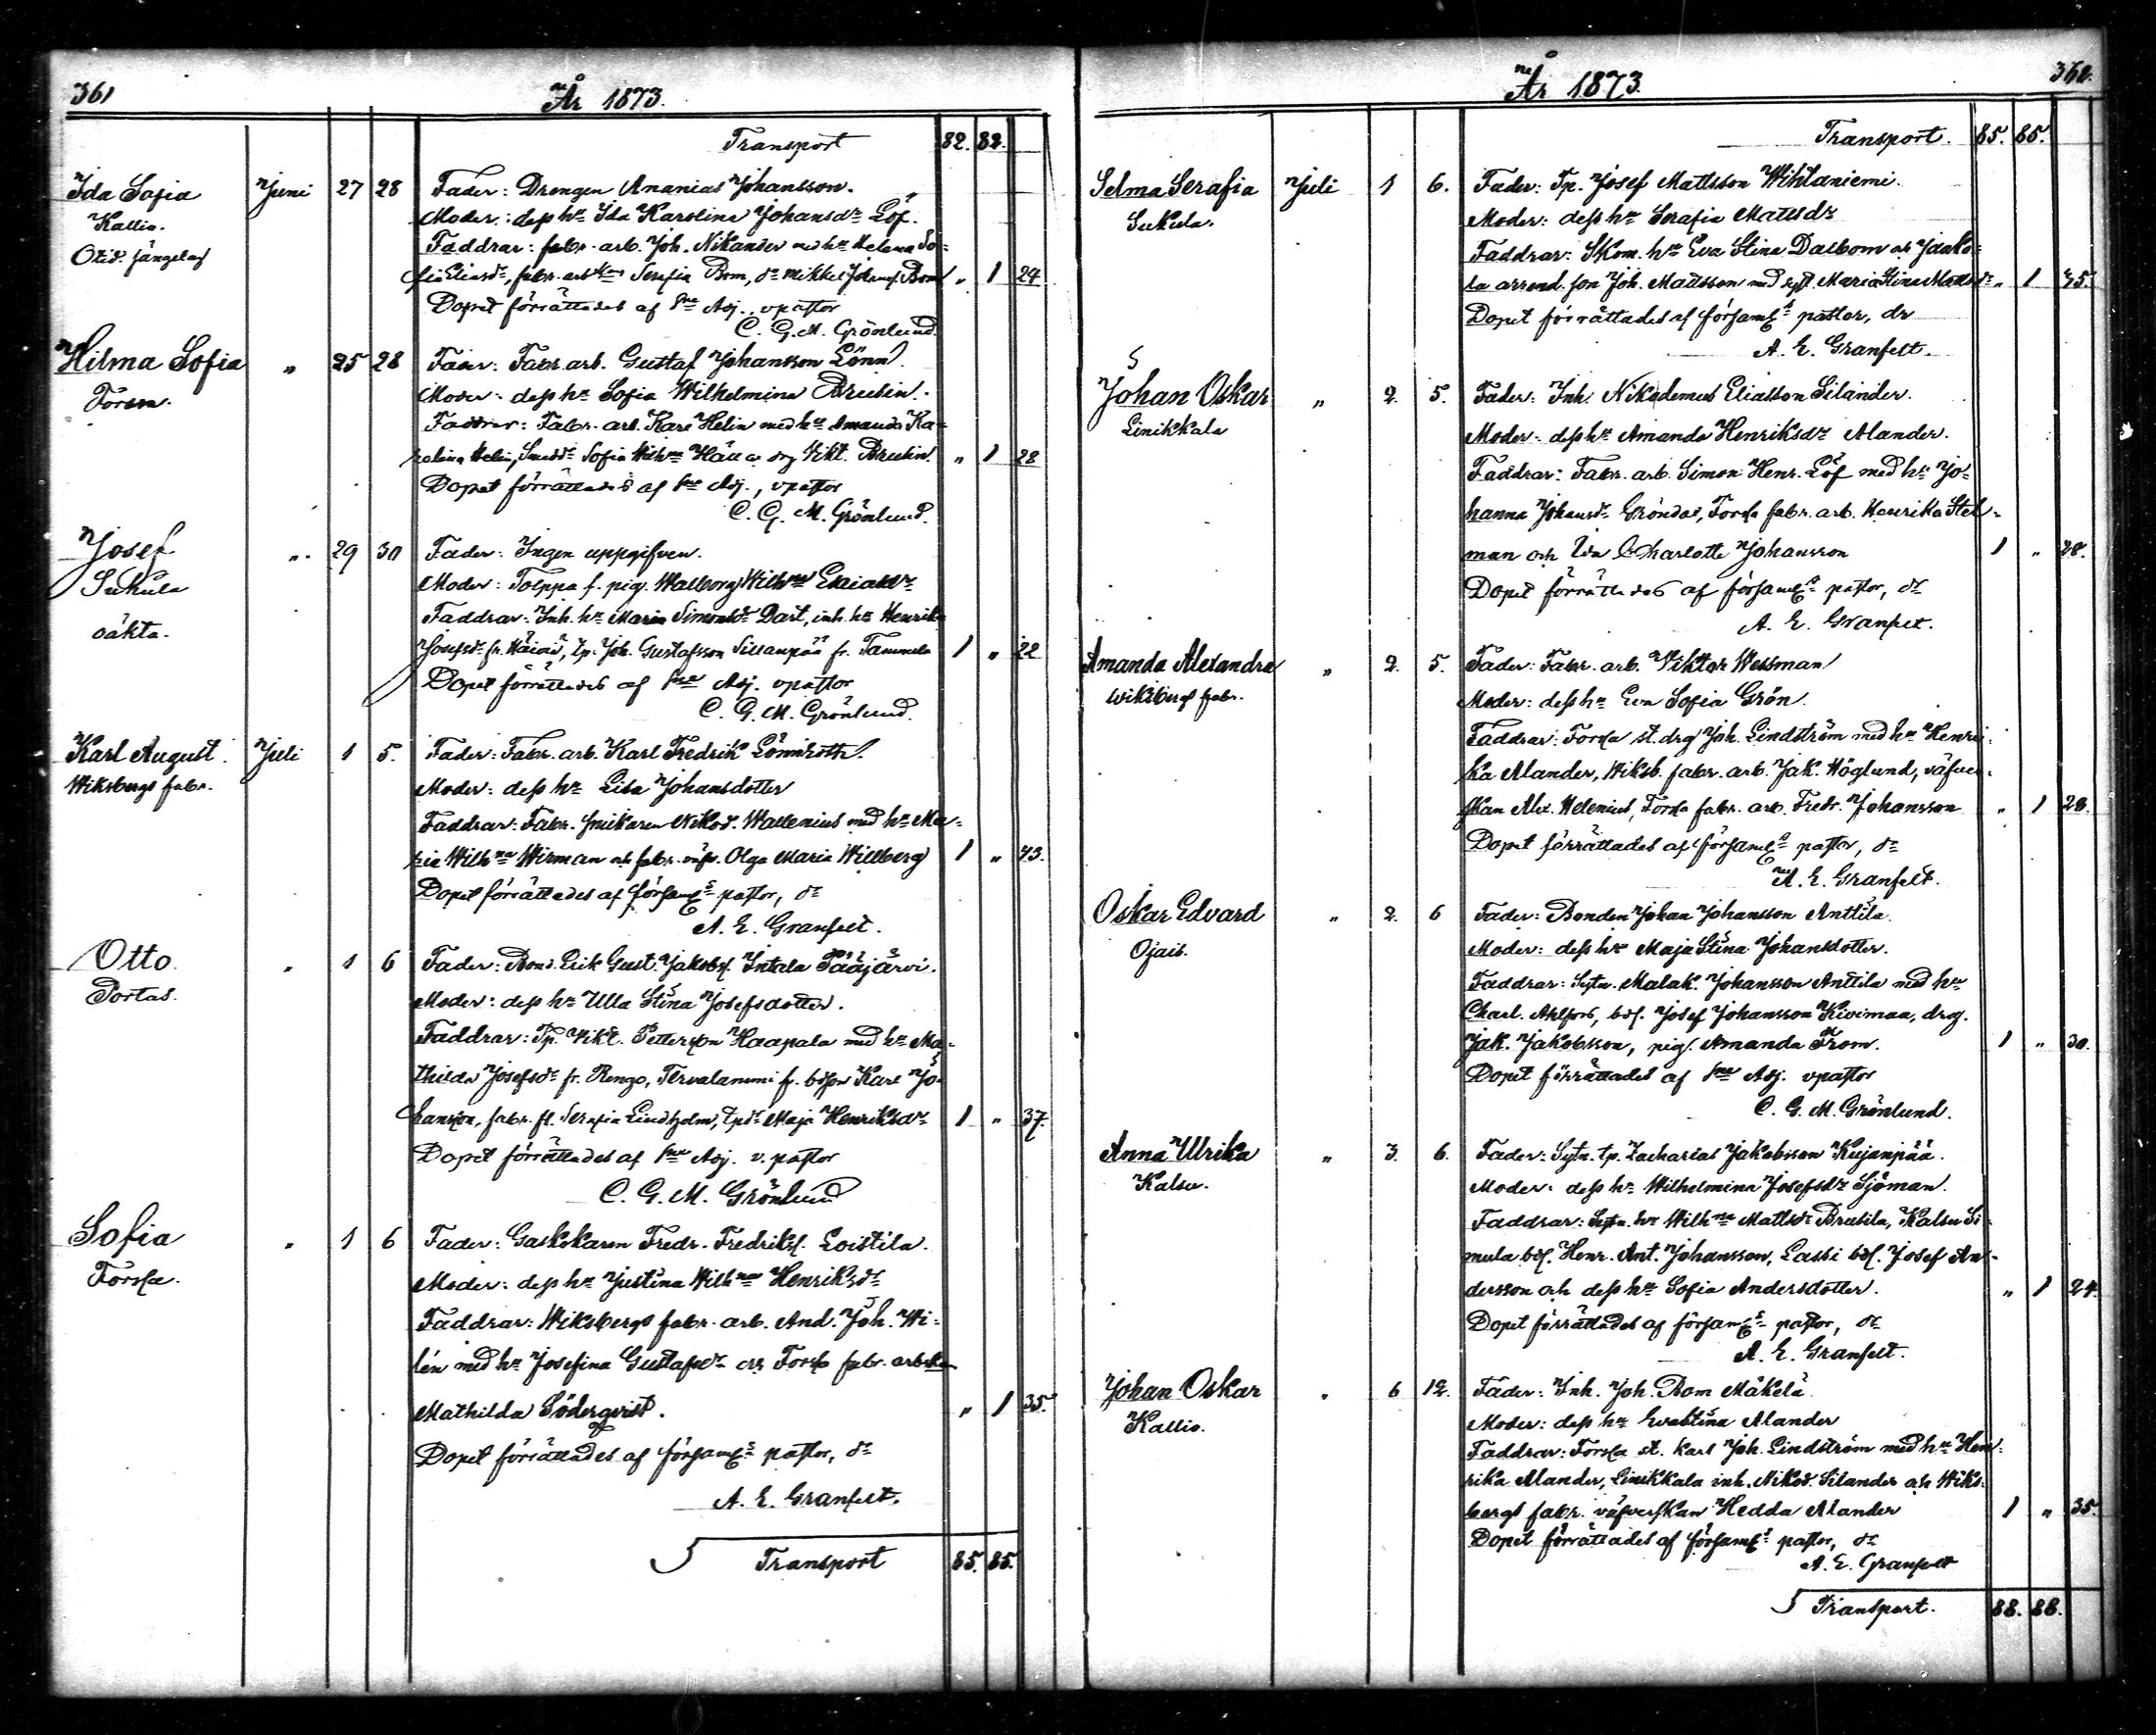 361
År 1873.
Transport 82. 82.
Ida Sofia Juni 27 28 Fader: Drengen Ananias Johansson.
Kallio. Moder: dess hu Ida Karolina Johansdr Löf.
Faddrar: fabr. arb. Joh. Nikander med hu Helena So-
fia Eliasdr, fabr. arb. Serafia Bom, dr Mikkel Bom „ 1 24
Dopet förrättades af Adj., vpastor
C. G. M. Grönlund.
Hilma Sofia „ 25 28 Fader: Fabr. arb. Gustaf Johansson Lönn.
Forssa. Moder: dess hu Sofia Wilhelmina Brusin.
Faddrar: Fabr. arb. Karl Helin med hu Amanda Ka-
rolina Helin, Sofia Wilhna Vikt. Brusin. „ 1 28
Dopet förrättades af Adj., vpastor
C. G. M. Grönlund.
Josef „ 29 30 Fader: Ingen uppgifven.
Sukula Moder: Tolppa f. pig. Walborg Wilhna
oäkta. Faddrar: Inh. hu Maria Simonsdr Dart, inh. hu Henrika
Josefsdr fr. Tp. Joh. Gustafsson Sillanpää fr. Tammela 1 „ 22
Dopet förrättades af Adj. vpastor
C. G. M. Grönlund.
Karl August. Juli 1 5. Fader: Fabr. arb. Karl Fredrik Lönnroth.
Wiksbergs fabr. Moder: dess hu Lisa Johansdotter
Faddrar: Fabr. Nikod. Wallenius med hu Ma-
ria Wilhna Wirman och fabr. Olga Maria Willberg 1 „ 43.
Dopet förrättades af församl:s pastor, dr
A. E. Granfelt.
Otto. „ 1 6 Fader: Bond. Erik Gust. Jakobs. Intala Pääjärvi.
Portas. Moder: dess hu Ulla Stina Josefsdotter.
Faddrar: Tp. Vikt. Petterson Haapala med hu Ma-
thilda Josefsdr fr. Rengo, Tervalammi fr. Karl Jo-
hansson, fabr. fl. Serafia Lindholm, tpdr Maja Henriksdr 1 „ 37.
Dopet förrättades af Adj. v. pastor
C. G. M. Grönlund
Sofia „ 1 6 Fader: Gaskokaren Fredr. Fredriks. Loistila.
Forssa. Moder: dess hu Justina Wilhna Henriksdr
Faddrar: Wiksbergs fabr. arb. And. Joh. Wi-
lén med hu Josefina Gustafsdr och Forssa fabr. arb.
Mathilda Söderqvist. „ 1 35.
Dopet förrättades af församl:s pastor, dr
A. E. Granfelt.
Transport 85. 85.
362.
År 1873.
Transport. 85. 85.
Selma Serafia Juli 1 6. Fader: Tp. Josef Mattsson Wihtaniemi.
Sukula. Moder: dess hu Serafia Mattsdr
Faddrar: Skom. hu Eva Stina Dalbom och Jaako-
la arrend. son Joh. Mattsson med syst. Maria Stina Mattsdr „ 1 45.
Dopet förrättades af församl:s pastor, dr
A. E. Granfelt.
Johan Oskar „ 2. 5. Fader: Inh. Nikodemus Eliasson Silander.
Linikkala Moder: dess hu Amanda Henriksdr Alander.
Faddrar: Fabr. arb. Simon Henr. Löf med hu Jo-
hanna Johansdr Gröndal, Forssa fabr. arb. Henrika Stel-
man och Charlotta Johansson 1 „ 28.
Dopet förrättades af församl:s pastor, dr
A. E. Granfelt.
Amanda Alexandra „ 2. 5. Fader: Fabr. arb. Viktor Wessman
Wiksbergs fabr. Moder: dess hu Eva Sofia Grön.
Faddrar: Forssa st. drg Joh. Lindström med hu Henri-
ka Alander, Wiksb. fabr. arb. Jak. Höglund, väfver-
skan Alex. Helenius, Forssa fabr. arb. Fredr. Johansson „ 1 28.
Dopet förrättades af församl:s pastor, dr
A. E. Granfelt.
Oskar Edvard „ 2. 6 Fader: Bonden Johan Johansson Anttila.
Ojais. Moder: dess hu Maja Stina Johansdotter.
Faddrar: Sytn. Malak. Johansson Anttila med hu
Charl. Ahlfors, bds. Josef Johansson Kivimaa, drg.
Jak. Jakobsson, pig. Amanda From. 1 „ 30.
Dopet förrättades af Adj. vpastor
C. G. M. Grönlund.
Anna Ulrika „ 3. 6. Fader: Sytn. tp. Zacharias Jakobsson Kujanpää.
Kalsu. Moder: dess hu Wilhelmina Josefsdr Sjöman.
Faddrar: Sytn. hu Wilhna Mattsdr Brusila, Kalsu Si-
mula bds. Henr. Ant. Johansson, Lassi bds. Josef An-
dersson och dess hu Sofia Andersdotter. „ 1 24.
Dopet förrättades af församl:s pastor, dr
A. E. Granfelt.
Johan Oskar „ 6 12. Fader: Inh. Joh. Rom Mäkelä
Kallio. Moder: dess hu Evastina Alander
Faddrar: Forssa st. karl Joh. Lindström med hu Hen-
rika Alander, Linikkala inh. Nikod. Silander och Wiks-
bergs fabr. väfverskan Hedda Alander 1 „ 35.
Dopet förrättades af församl:s pastor, dr
A. E. Granfelt
Transport. 88. 88.